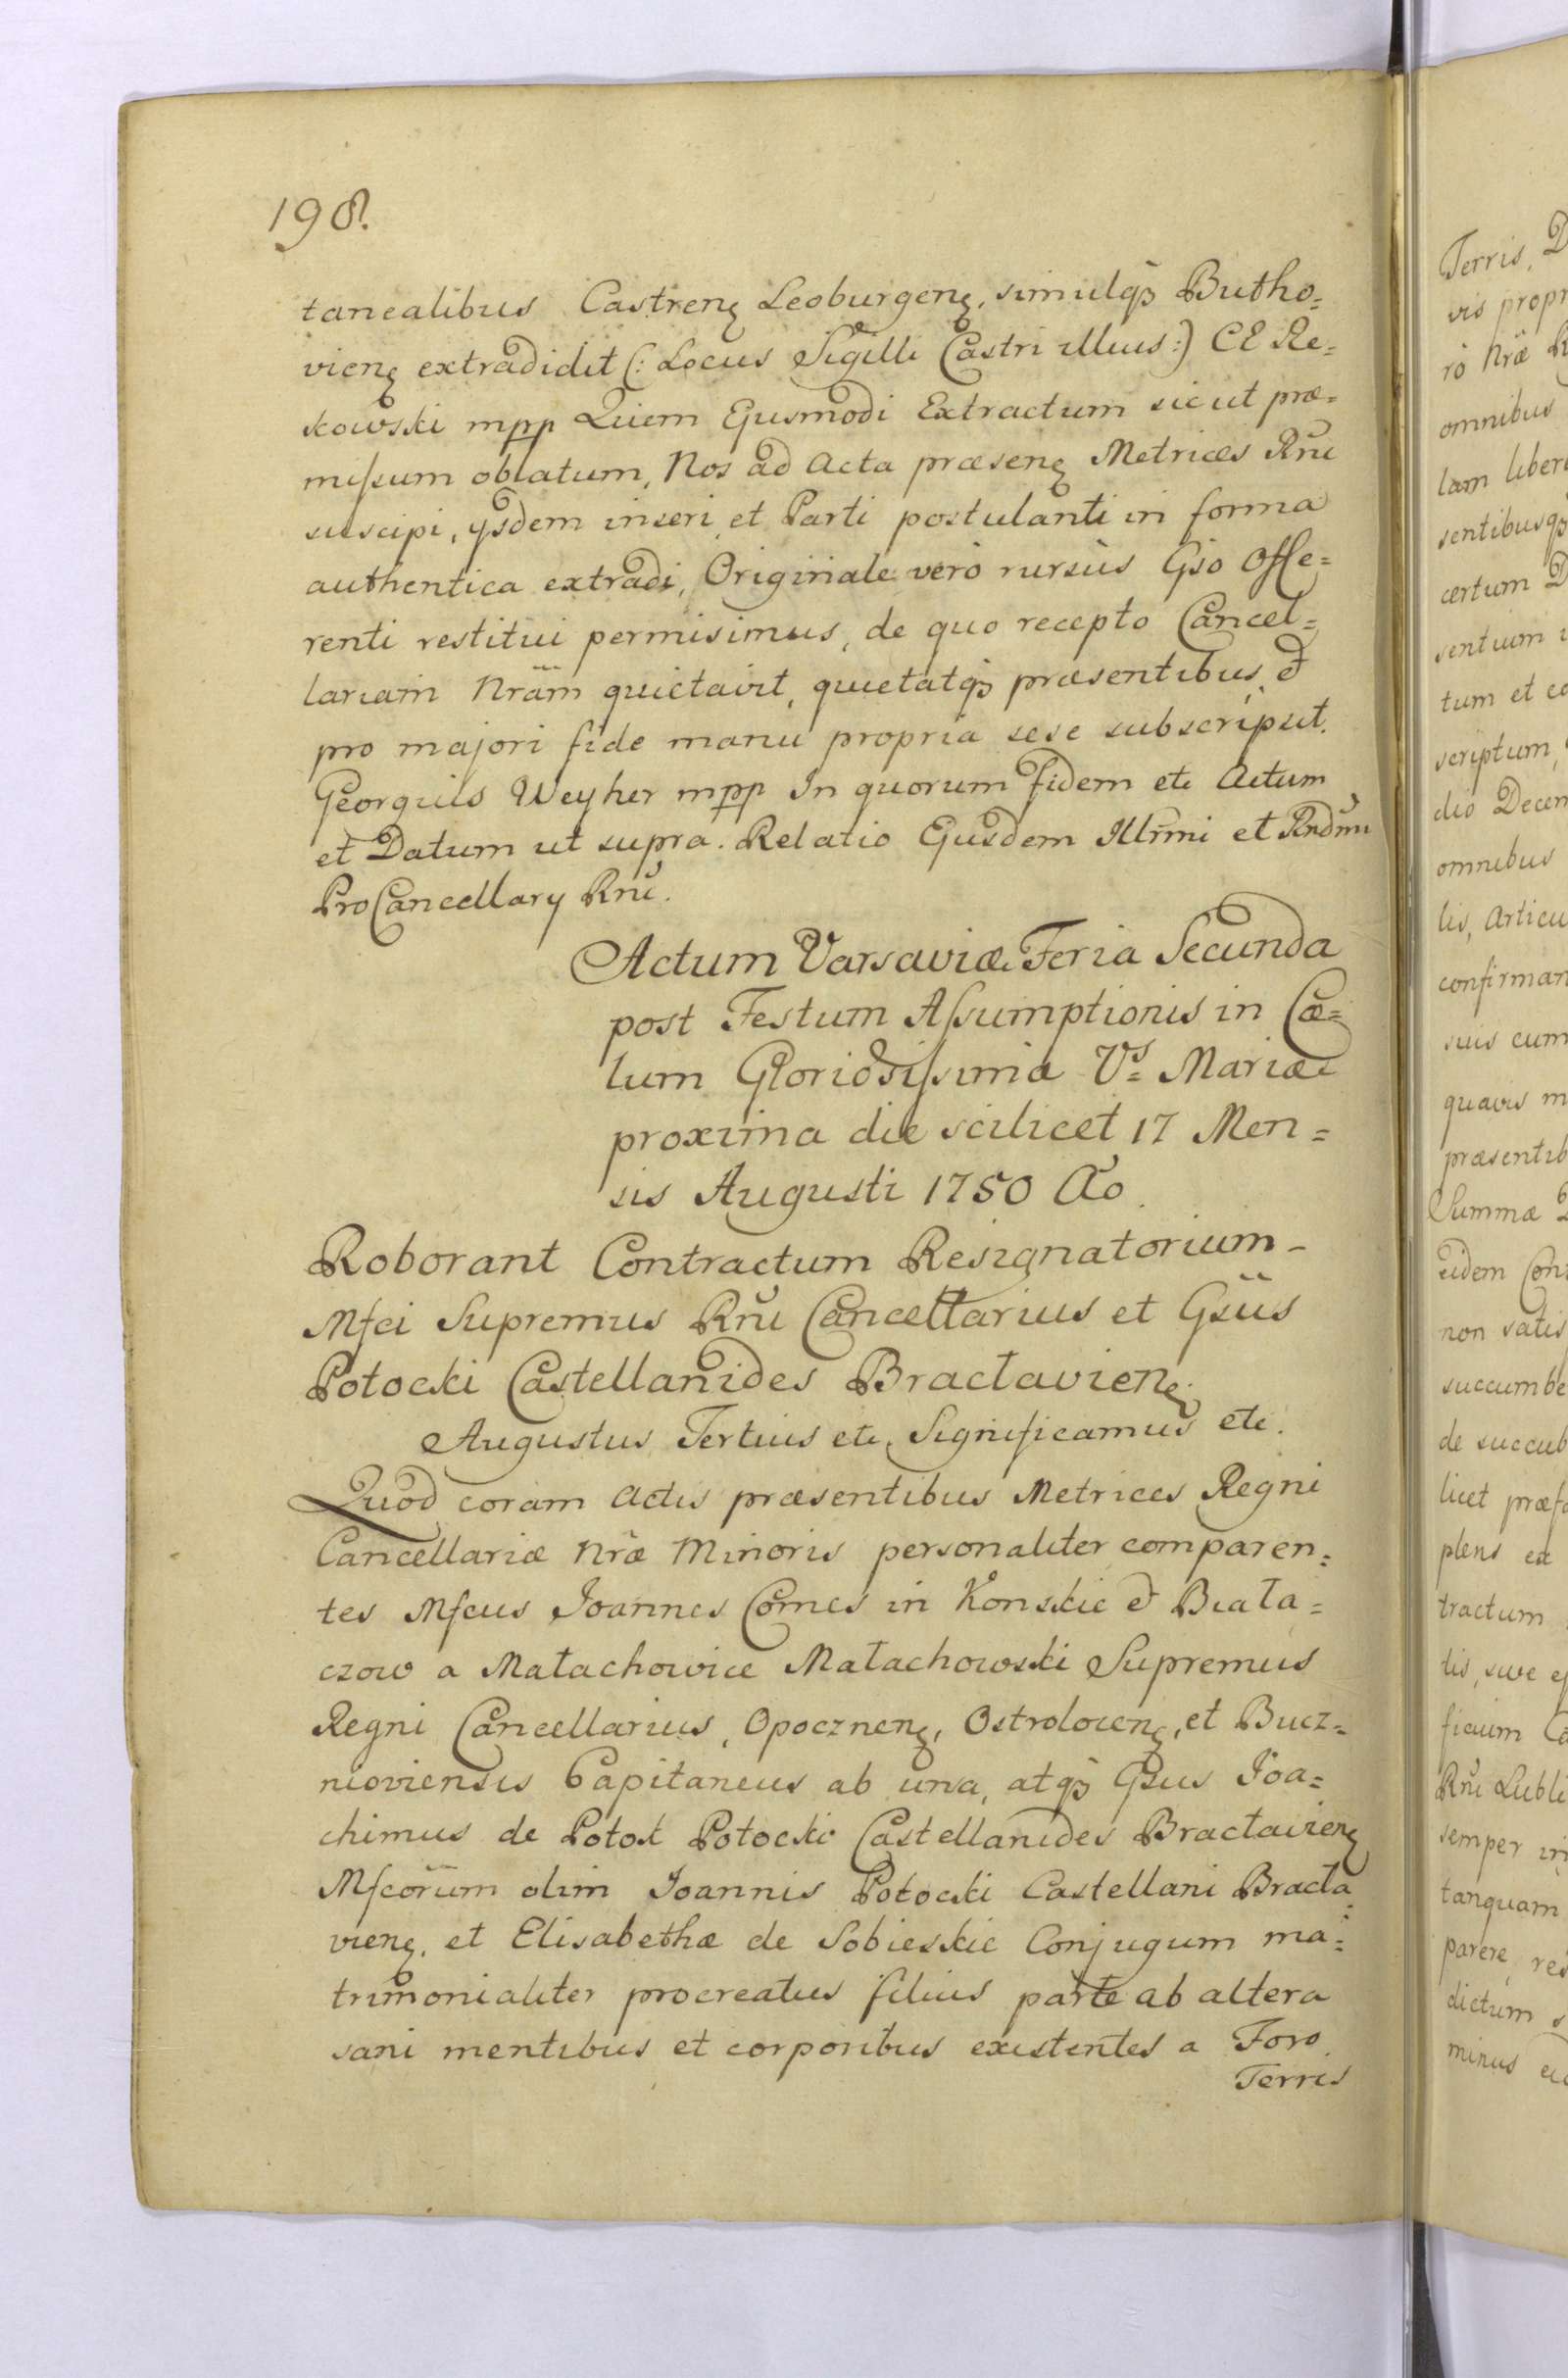 198.
tanealibus Castrens Leoburgens, simulqꝫ Butho=
viens extradidit (: Locus Sigilli Castri illius :) CE Re=
kowski mpp Quem Ejusmodi Extractum sicut præ=
missum oblatum, Nos ad Acta præsens Metrices Rni
suscipi, ysdem inseri, et Parti postulanti in forma
authentica extradi, Originale verò rursùs Gso Offe=
renti restitui permisimus, de quo recepto Cancel=
lariam Nram quietavit, quietatqꝫ præsentibus, &
pro majori fide manu propria sese subscripsit.
Georgius Weyher mpp In quorum fidem etc Actum
et Datum ut supra. Relatio Ejusdem Illrmi et Rndmi
ProCancellary Rni.
Actum Varsaviæ Feria Secunda
post Festum Assumptionis in Cæ=
lum Gloriosissimæ Vs= Mariæ
proxima die scilicet 17 Men=
sis Augusti 1750 Ao.
Roborant Contractum Resignatorium -
Mfci Supremus Rni Cancellarius et Gsus
Potocki Castellanides Bracłaviens.
Augustus Tertius etc. Significamus etc.
Quod coram Actis præsentibus Metrices Regni
Cancellariæ Nræ Minoris personaliter comparen=
tes Mfcus Joannes Comes in Konskie & Biała=
czow a Małachowice Małachowski Supremus
Regni Cancellarius, Opocznens, Ostroloicens, et Bucz=
nioviensis Capitaneus ab una, atqꝫ Gsus Joa=
chimus de Potok Potocki Castellanides Bracłaviens
Mfcorum olim Joannis Potocki Castellani Bracła=
viens, et Elisabethæ de Sobieskie Conjugum ma=
trimonialiter procreatus filius parte ab altera
sani mentibus et corporibus existentes a Foro
Terris
Terris, D
vis propr
rò Nræ R
omnibus
lam liber
sentibusqꝫ
certum D
sentium
tum et co
scriptum
dio Decem
omnibus
lis, Articu
confirman
suis cum
quavis m
præsentib
Summæ
eidem Con
non satis
succumbe
de succub
licet præfa
plens ex
tractum
tis, sive ej
ficium Ca
Rni Lubli
semper in
tanquam
parere, res
dictum s
minus